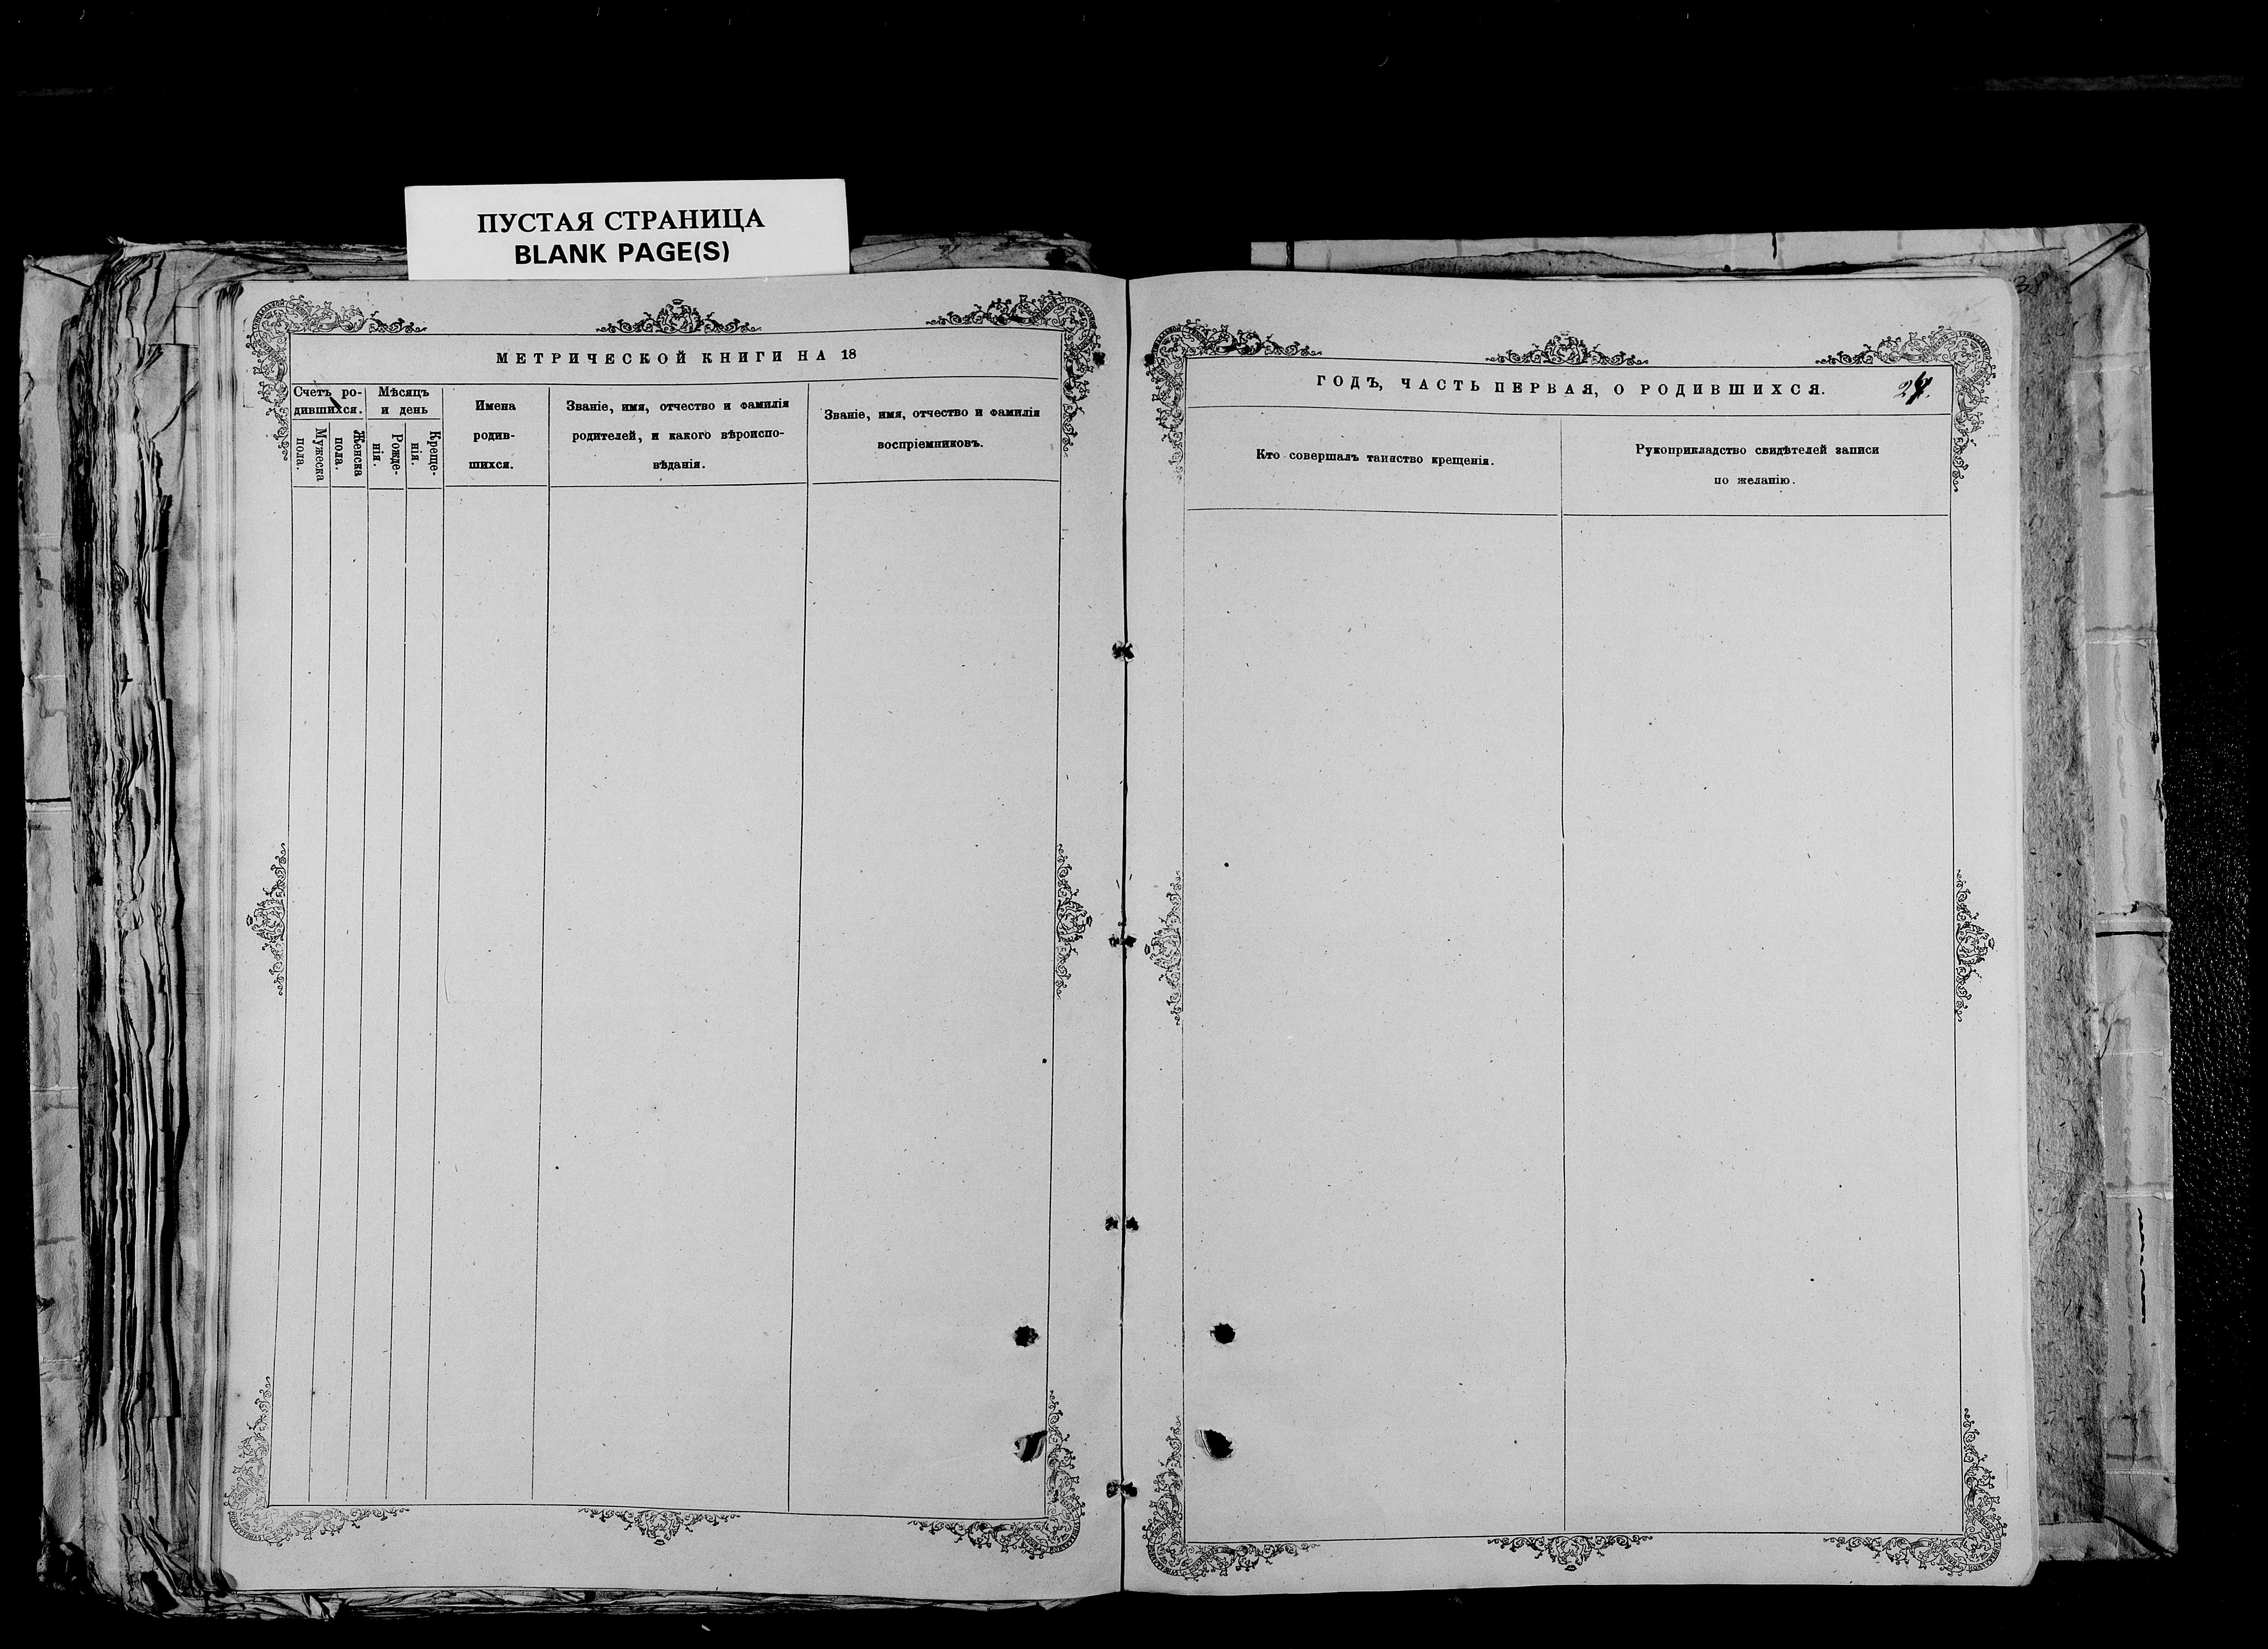 ПУСТАЯ СТРАНИЦА
BLANK PAGE(S)
МЕТРИЧЕСКОЙ КНИГИ НА 18
Счетъ ро-
дившихся.
Мужеска
пола.
Женска
пола.
Мѣсяцъ
и день
Рожде-
нія.
Креще-
нія.
Имена
родив-
шихся.
Званіе, имя, отчество и фамилія
родителей, и какого вѣроиспо-
вѣданія.
Званіе, имя, отчество и фамилія
воспріемниковъ.
ГОДЪ, ЧАСТЬ ПЕРВАЯ, О РОДИВШИХСЯ.
Кто совершалъ таинство крещенія.
Рукоприкладство свидѣтелей записи
по желанію.